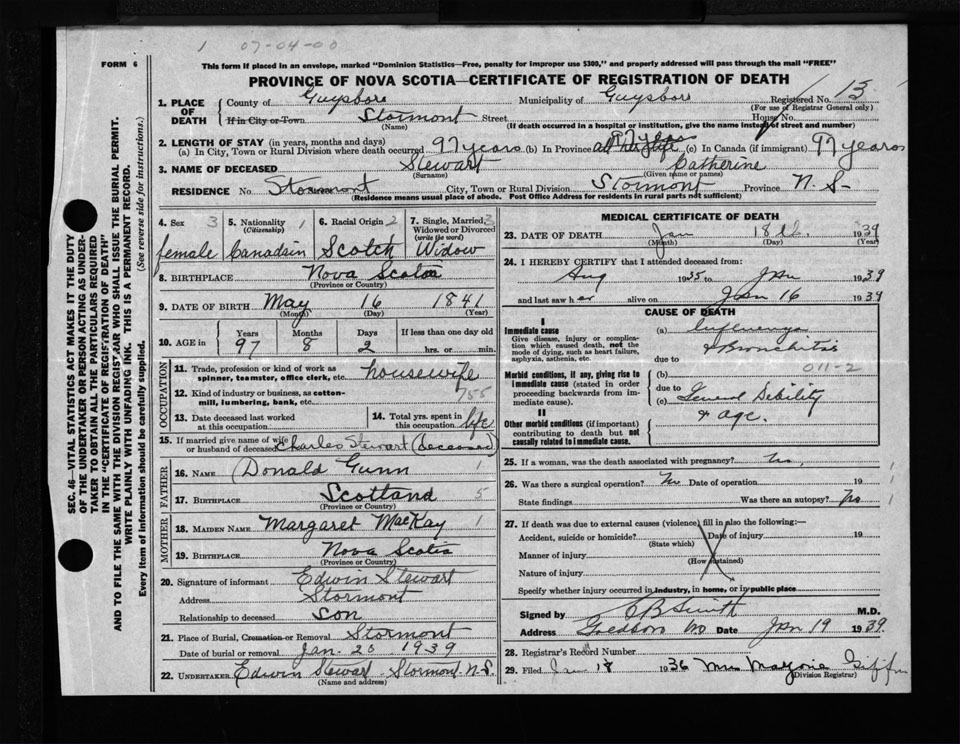 1 07-04-00
FORM 6
This form if placed in an envelope, marked "Dominion Statistics—Free, penalty for improper use $300," and properly addressed will pass through the mail "FREE"
PROVINCE OF NOVA SCOTIA—CERTIFICATE OF REGISTRATION OF DEATH
1. PLACE OF DEATH County of Guysboro Municipality of Guysboro Registered No. 13
(For use of Registrar General only)
If in City or Town Stormont Street House No.
(Name) (If death occurred in a hospital or institution, give the name instead of street and number)
2. LENGTH OF STAY (in years, months and days)
(a) In City, Town or Rural Division where death occurred 97 years (b) In Province all her life 97 years (c) In Canada (if immigrant) 97 years
3. NAME OF DECEASED Stewart Catherine
(Surname) (Given name or names)
RESIDENCE No. Stormont City, Town or Rural Division Stormont Province N. S-
(Residence means usual place of abode. Post Office Address for residents in rural parts not sufficient)
4. Sex 3 5. Nationality 1 6. Racial Origin 2 7. Single, Married, 3
(Citizenship) Widowed or Divorced
(write the word)
female Canadain Scotch Widow
8. BIRTHPLACE Nova Scotia
(Province or Country)
9. DATE OF BIRTH May 16 1841
(Month) (Day) (Year)
10. AGE in Years Months Days If less than one day old
97 8 2 hrs. or min.
OCCUPATION
11. Trade, profession or kind of work as
spinner, teamster, office clerk, etc. housewife
12. Kind of industry or business, as cotton-
mill, lumbering, bank, etc. 755
13. Date deceased last worked
at this occupation
14. Total yrs. spent in
this occupation life
15. If married give name of wife
or husband of deceased Charles Stewart (deceased)
FATHER
16. NAME Donald Gunn 1
17. BIRTHPLACE Scotland 5
(Province or Country)
MOTHER
18. MAIDEN NAME Margaret MacKay 1
19. BIRTHPLACE Nova Scotia
(Province or Country)
20. Signature of informant Edwin Stewart
Address Stormont
Relationship to deceased son
21. Place of Burial, Cremation or Removal Stormont
Date of burial or removal Jan. 20 1939
22. UNDERTAKER Edwin Stewart - Stormont. N.S.
(Name and address)
MEDICAL CERTIFICATE OF DEATH
23. DATE OF DEATH Jan 18th. 1939
(Month) (Day) (Year)
24. I HEREBY CERTIFY that I attended deceased from:
Aug 1935 to Jan 1939
and last saw her alive on Jan 16 1939
CAUSE OF DEATH
I
Immediate cause
Give disease, injury or complica-
tion which caused death, not the
mode of dying, such as heart failure,
asphyxia, asthenia, etc.
(a) Influenza
& Bronchitis
due to
011-2
Morbid conditions, if any, giving rise to
immediate cause (stated in order
proceeding backwards from
immediate cause).
(b)
due to
(c) General Debility
& age.
II
Other morbid conditions (if important)
contributing to death but not
causally related to immediate cause.
25. If a woman, was the death associated with pregnancy? No,
26. Was there a surgical operation? No Date of operation 19 1
State findings Was there an autopsy? No 1
27. If death was due to external causes (violence) fill in also the following:—
Accident, suicide or homicide? Date of injury 19
(State which)
Manner of injury
(How sustained)
Nature of injury
Specify whether injury occurred in industry, in home, or in public place
Signed by C B Smith M.D.
Address Goldboro NS Date Jan 19 1939.
28. Registrar's Record Number
29. Filed Jan 18 1936 Mrs Marjorie Giffin
(Division Registrar)
SEC. 46—VITAL STATISTICS ACT MAKES IT THE DUTY
OF THE UNDERTAKER OR PERSON ACTING AS UNDER-
TAKER TO OBTAIN ALL THE PARTICULARS REQUIRED
IN THE "CERTIFICATE OF REGISTRATION OF DEATH"
AND TO FILE THE SAME WITH THE DIVISION REGISTRAR WHO SHALL ISSUE THE BURIAL PERMIT.
WRITE PLAINLY WITH UNFADING INK. THIS IS A PERMANENT RECORD.
Every item of information should be carefully supplied. (See reverse side for instructions.)